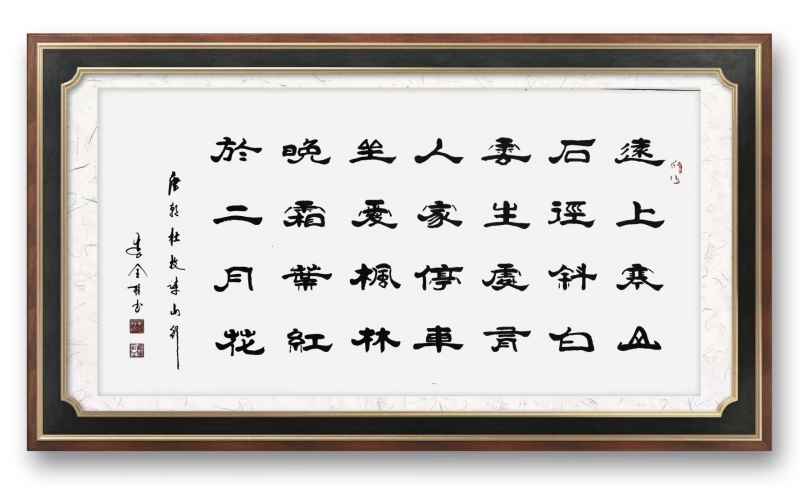 遠上寒山
石徑斜白
雲生處有
人家停車
坐愛楓林
晚霜葉紅
於二月花
唐朝杜牧詩山行